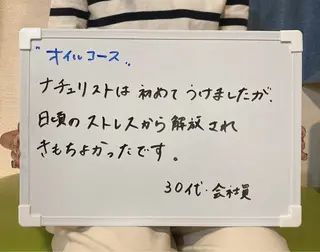 "オイルコース"
ナチュリストは 初めて うけましたが、
日頃の ストレスから 解放され
きもちよかったです。
30代・会社員